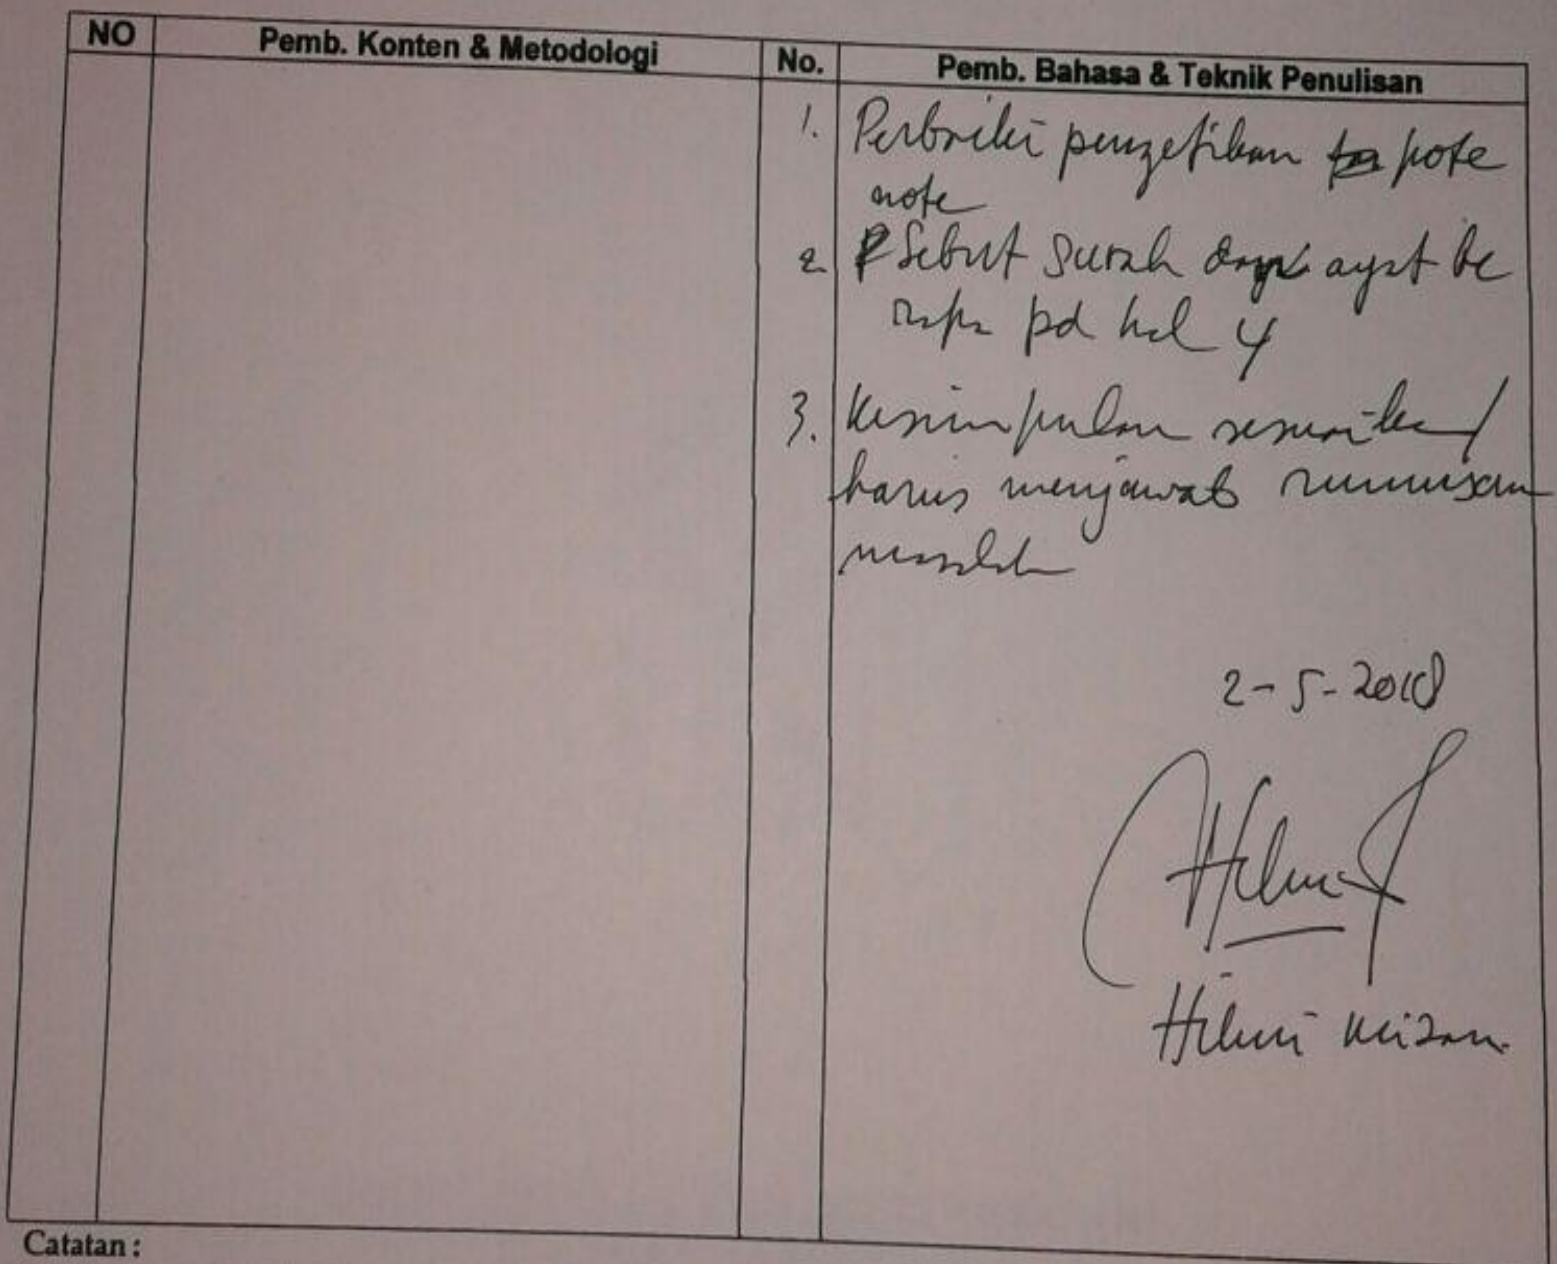 NO Pemb. Konten & Metodologi No. Pemb. Bahasa & Teknik Penulisan
1. Perbaiki pengetikan pote
note
2 Sebut surah dan ayat be
rapa pd hal 4
3. Kesimpulan sesuaikan/
harus menjawab rumusan
masalah
2-5-2018
Hilmi
Hilmi Mizan
Catatan :